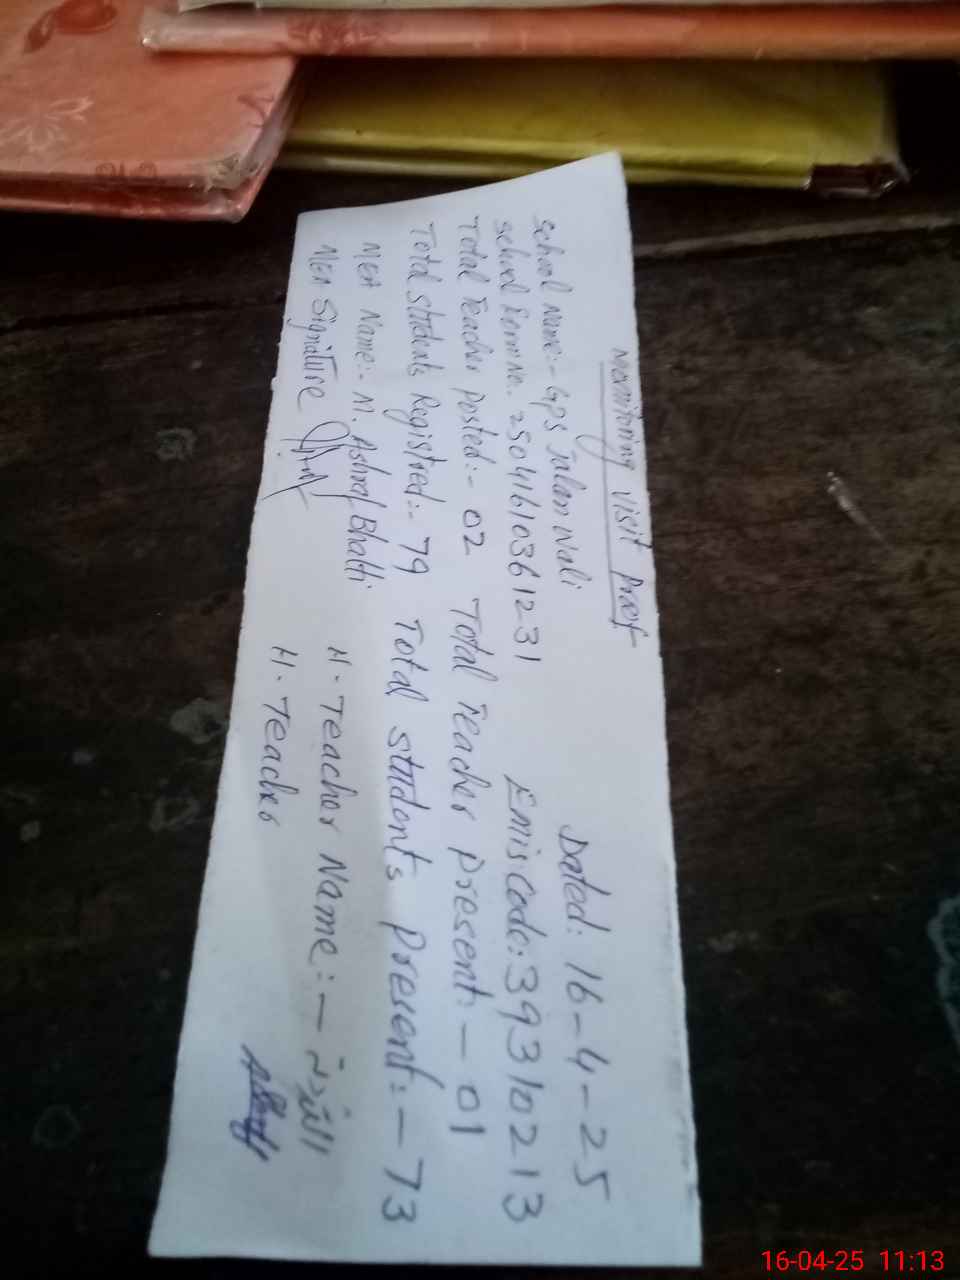 Monitoring Visit Proof
Dated: 16-4-25
School Name:- GPS Jalan Wali
School Semis No. 25041610361231 Emis Code: 39310213
Total Teacher Posted:- 02 Total Teacher Present:- 01
Total Students Registred:- 79 Total Students Present:- 73
MEA Name:- M. Ashraf Bhatti H-Teacher Name:-
MEA Signature H-Teacher
16-04-25 11:13